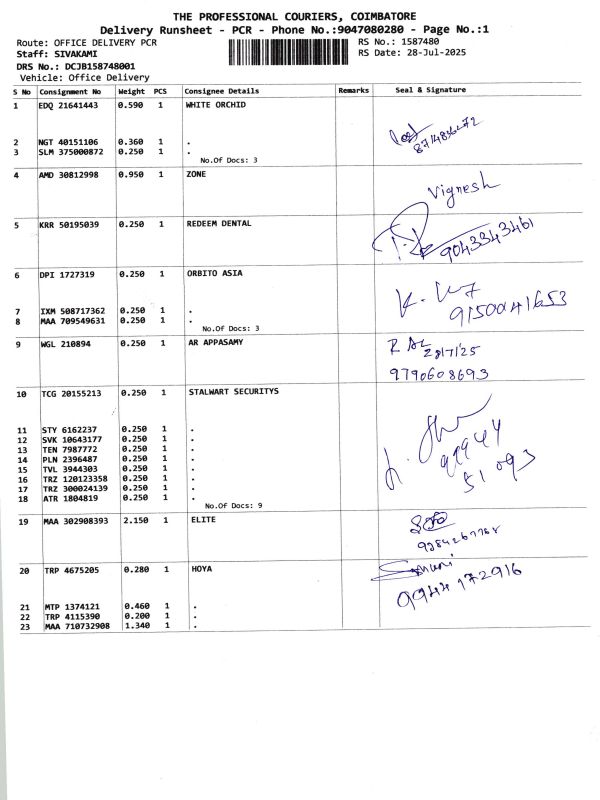 THE PROFESSIONAL COURIERS, COIMBATORE
Delivery Runsheet - PCR - Phone No.:9047080280 - Page No.:1
Route: OFFICE DELIVERY PCR
RS No.: 1587480
Staff: SIVAKAMI
RS Date: 28-Jul-2025
DRS No.: DCJB158748001
Vehicle: Office Delivery
S No Consignment No Weight PCS Consignee Details Remarks Seal & Signature
1 EDQ 21641443 0.590 1 WHITE ORCHID
2 NGT 40151106 0.360 1 .
3 SLM 375000872 0.250 1 .
No.Of Docs: 3
4 AMD 30812998 0.950 1 ZONE
Vignesh
5 KRR 50195039 0.250 1 REDEEM DENTAL
9043343461
6 DPI 1727319 0.250 1 ORBITO ASIA
7 IXM 508717362 0.250 1 .
9150041653
8 MAA 709549631 0.250 1 .
No.Of Docs: 3
9 WGL 210894 0.250 1 AR APPASAMY
28/7/25
9790608693
10 TCG 20155213 0.250 1 STALWART SECURITYS
11 STY 6162237 0.250 1 .
12 SVK 10643177 0.250 1 .
13 TEN 7987772 0.250 1 .
14 PLN 2396487 0.250 1 .
15 TVL 3944303 0.250 1 .
16 TRZ 120123358 0.250 1 .
17 TRZ 300024139 0.250 1 .
18 ATR 1804819 0.250 1 .
99944
51093
No.Of Docs: 9
19 MAA 302908393 2.150 1 ELITE
20 TRP 4675205 0.280 1 HOYA
9944172916
21 MTP 1374121 0.460 1 .
22 TRP 4115390 0.200 1 .
23 MAA 710732908 1.340 1 .